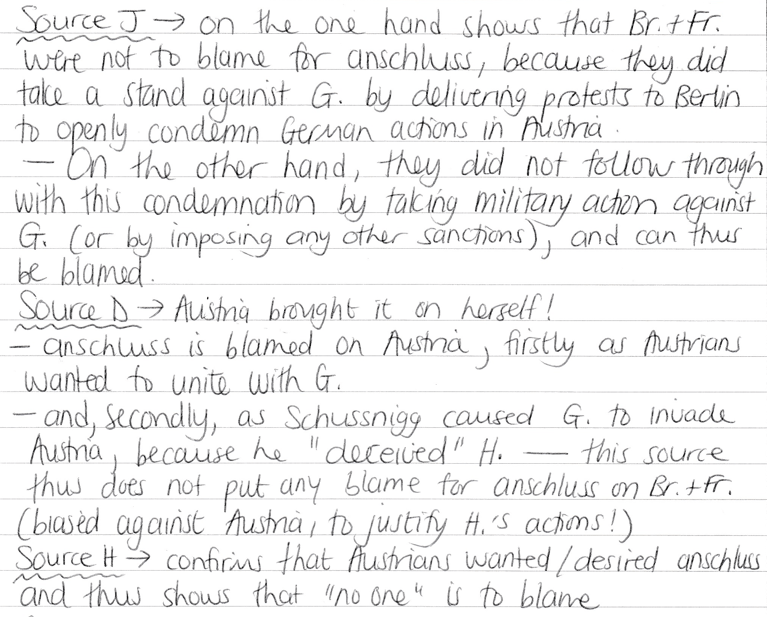 Source J → on the one hand shows that Br. + Fr.
were not to blame for anschluss, because they did
take a stand against G. by delivering protests to Berlin
to openly condemn German actions in Austria.
— On the other hand, they did not follow through
with this condemnation by taking military action against
G. (or by imposing any other sanctions), and can thus
be blamed.
Source D → Austria brought it on herself!
– anschluss is blamed on Austria, firstly as Austrians
wanted to unite with G.
– and, secondly, as Schussnigg caused G. to invade
Austria, because he "deceived" H. — this source
thus does not put any blame for anschluss on Br. + Fr.
(biased against Austria, to justify H.'s actions!)
Source H → confirms that Austrians wanted/desired anschluss
and thus shows that "no one" is to blame